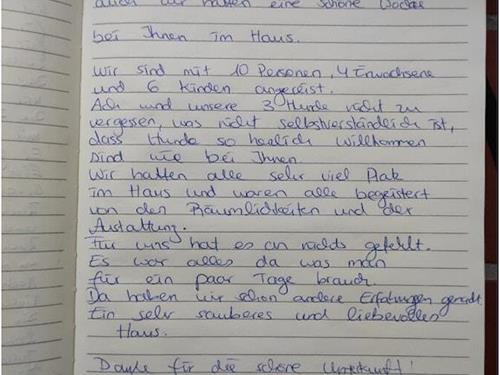 auch wir hatten eine schöne Woche
bei Ihnen im Haus.
Wir sind mit 10 Personen, 4 Erwachsene
und 6 Kinden angereist.
Ach und unsere 3 Hunde nicht zu
vergessen, was nicht selbstverständlich ist,
dass Hunde so herzlich willkommen
sind wie bei Ihnen.
Wir hatten alle sehr viel Platz
im Haus und waren alle begeistert
von den Räumlichkeiten und der
Austattung.
Für uns hat es an nichts gefehlt.
Es war alles da was man
für ein paar Tage brauch.
Da haben wir schon andere Erfahrungen gemacht.
Ein sehr sauberes und liebevolles
Haus.
Danke für die schöne Unterkunft!